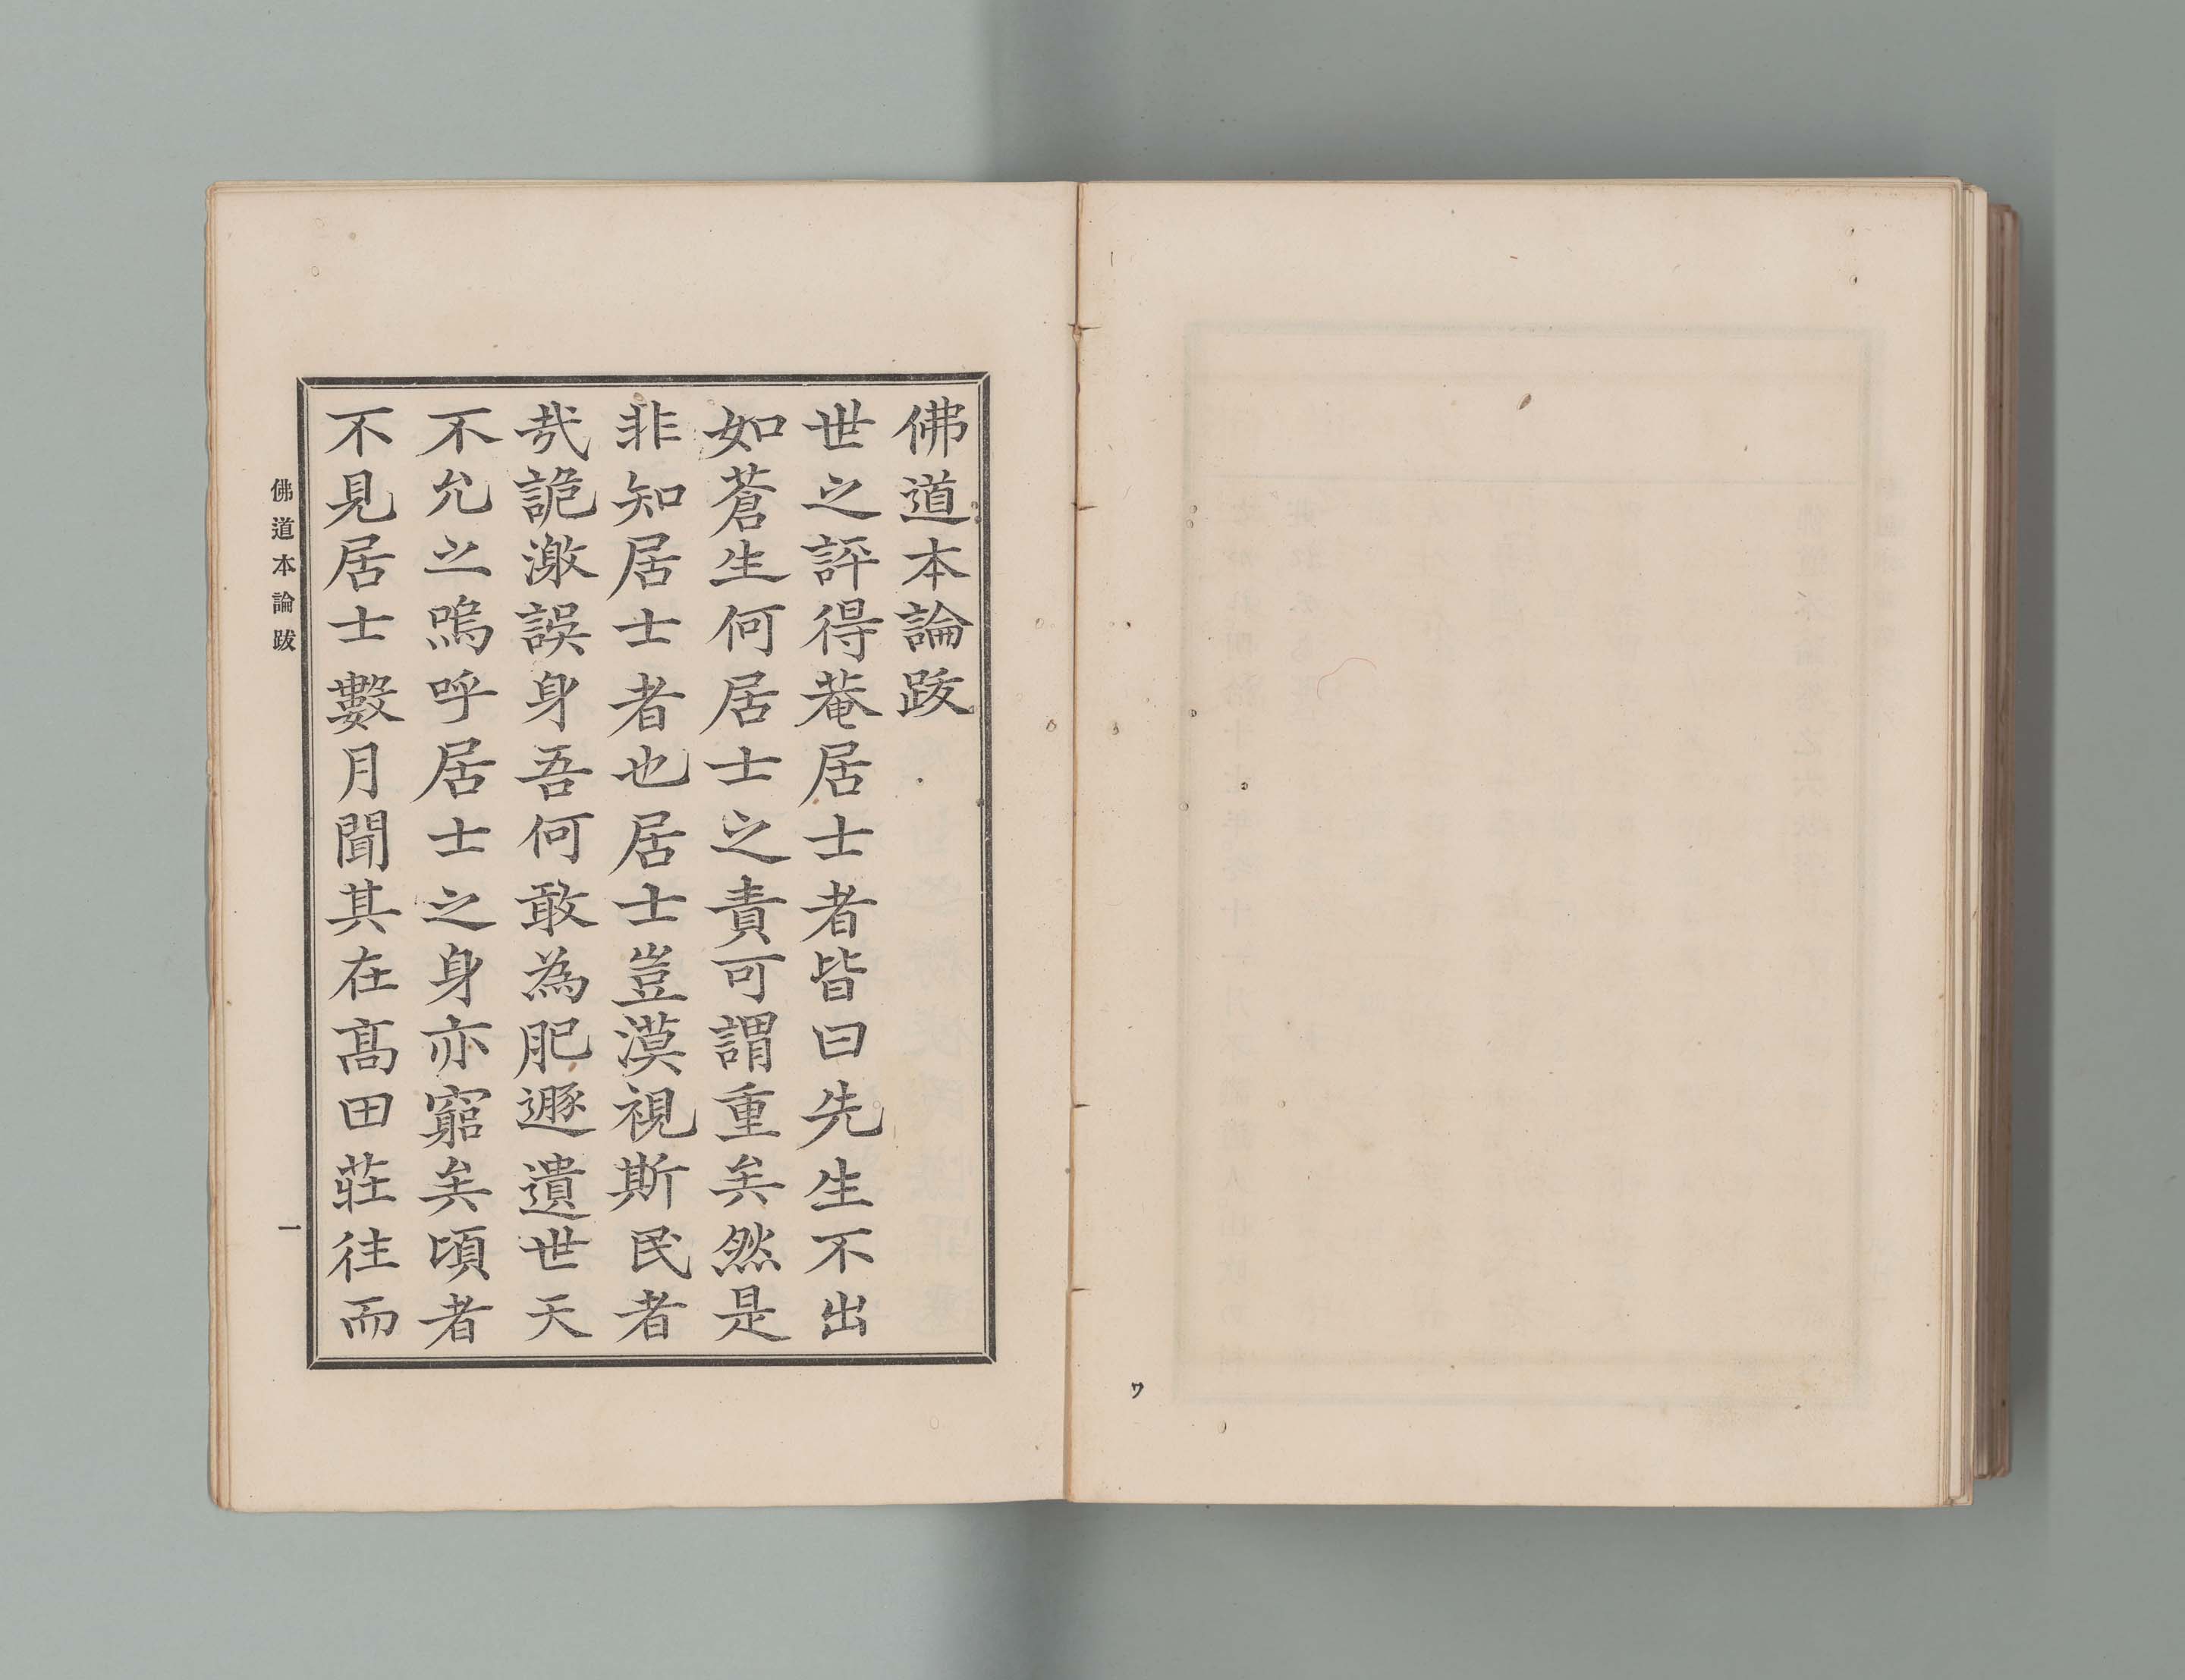 佛道本論跋
世之評得菴居士者皆曰先生不出
如蒼生何居士之責可謂重矣然是
非知居士者也居士豈漠視斯民者
哉詭激誤身吾何敢為肥遯遺世天
不允之嗚呼居士之身亦窮矣頃者
不見居士數月聞其在髙田莊往而
佛道本論跋
一
ワ